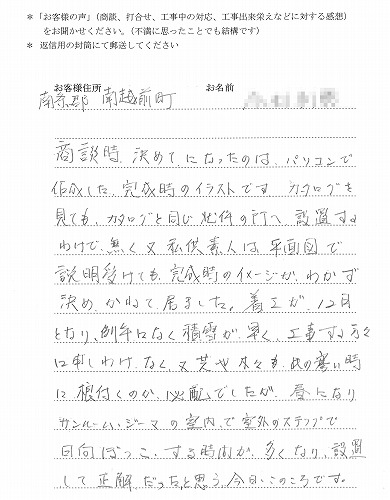 ＊「お客様の声」（商談、打合せ、工事中の対応、工事出来栄えなどに対する感想）
をお聞かせください。（不満に思ったことでも結構です）
＊ 返信用の封筒にて郵送してください
お客様住所　お名前
南条郡 南越前町
商談時、決めてになったのは、パソコンで
作成した、完成時のイラストです カタログを
見ても、カタログと同じ条件の所へ 設置する
わけで、無く 又 私供素人は、平面図で
説明受けても、完成時のイメージが、わかず
決め かねて 居ました。着工が、12月
となり、例年になく 積雪が 早く、工事する方々
に申しわけ なく、又 芝や 木々も、此の寒い時
に 根付くのか、心配でしたが、春になり
サンルーム・ジーマ の室内、で 室外のステップで
日向ぼっこ、する時間が、多くなり、設置
して 正解、だったと思う、今日、このころです。